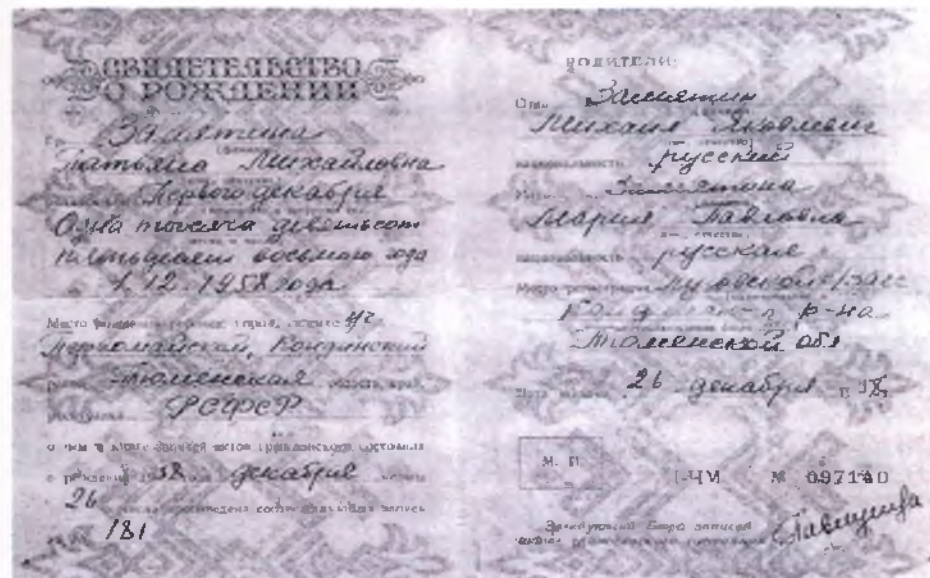 СВИДЕТЕЛЬСТВО
О РОЖДЕНИИ
Гр. Замятина
Татьяна Михайловна
Первого декабря
Одна тысяча девятьсот
пятьдесят восьмого года
1.12.1958 года
Место
Первомайский, Кондинский
Тюменская область, край,
РСФСР
о чем в книге записей актов гражданского состояния
о рождении 1958 года декабря
26 числа произведена соответствующая запись
181
РОДИТЕЛИ:
Отец Замятин
Михаил Яковлевич
национальность русский
Замятина
Мария Павловна
национальность русская
Место регистрации
р-на
Тюменской обл
26 декабря
М. П.
I-ЧМ № 097140
Заведующий Бюро записей
актов гражданского состояния